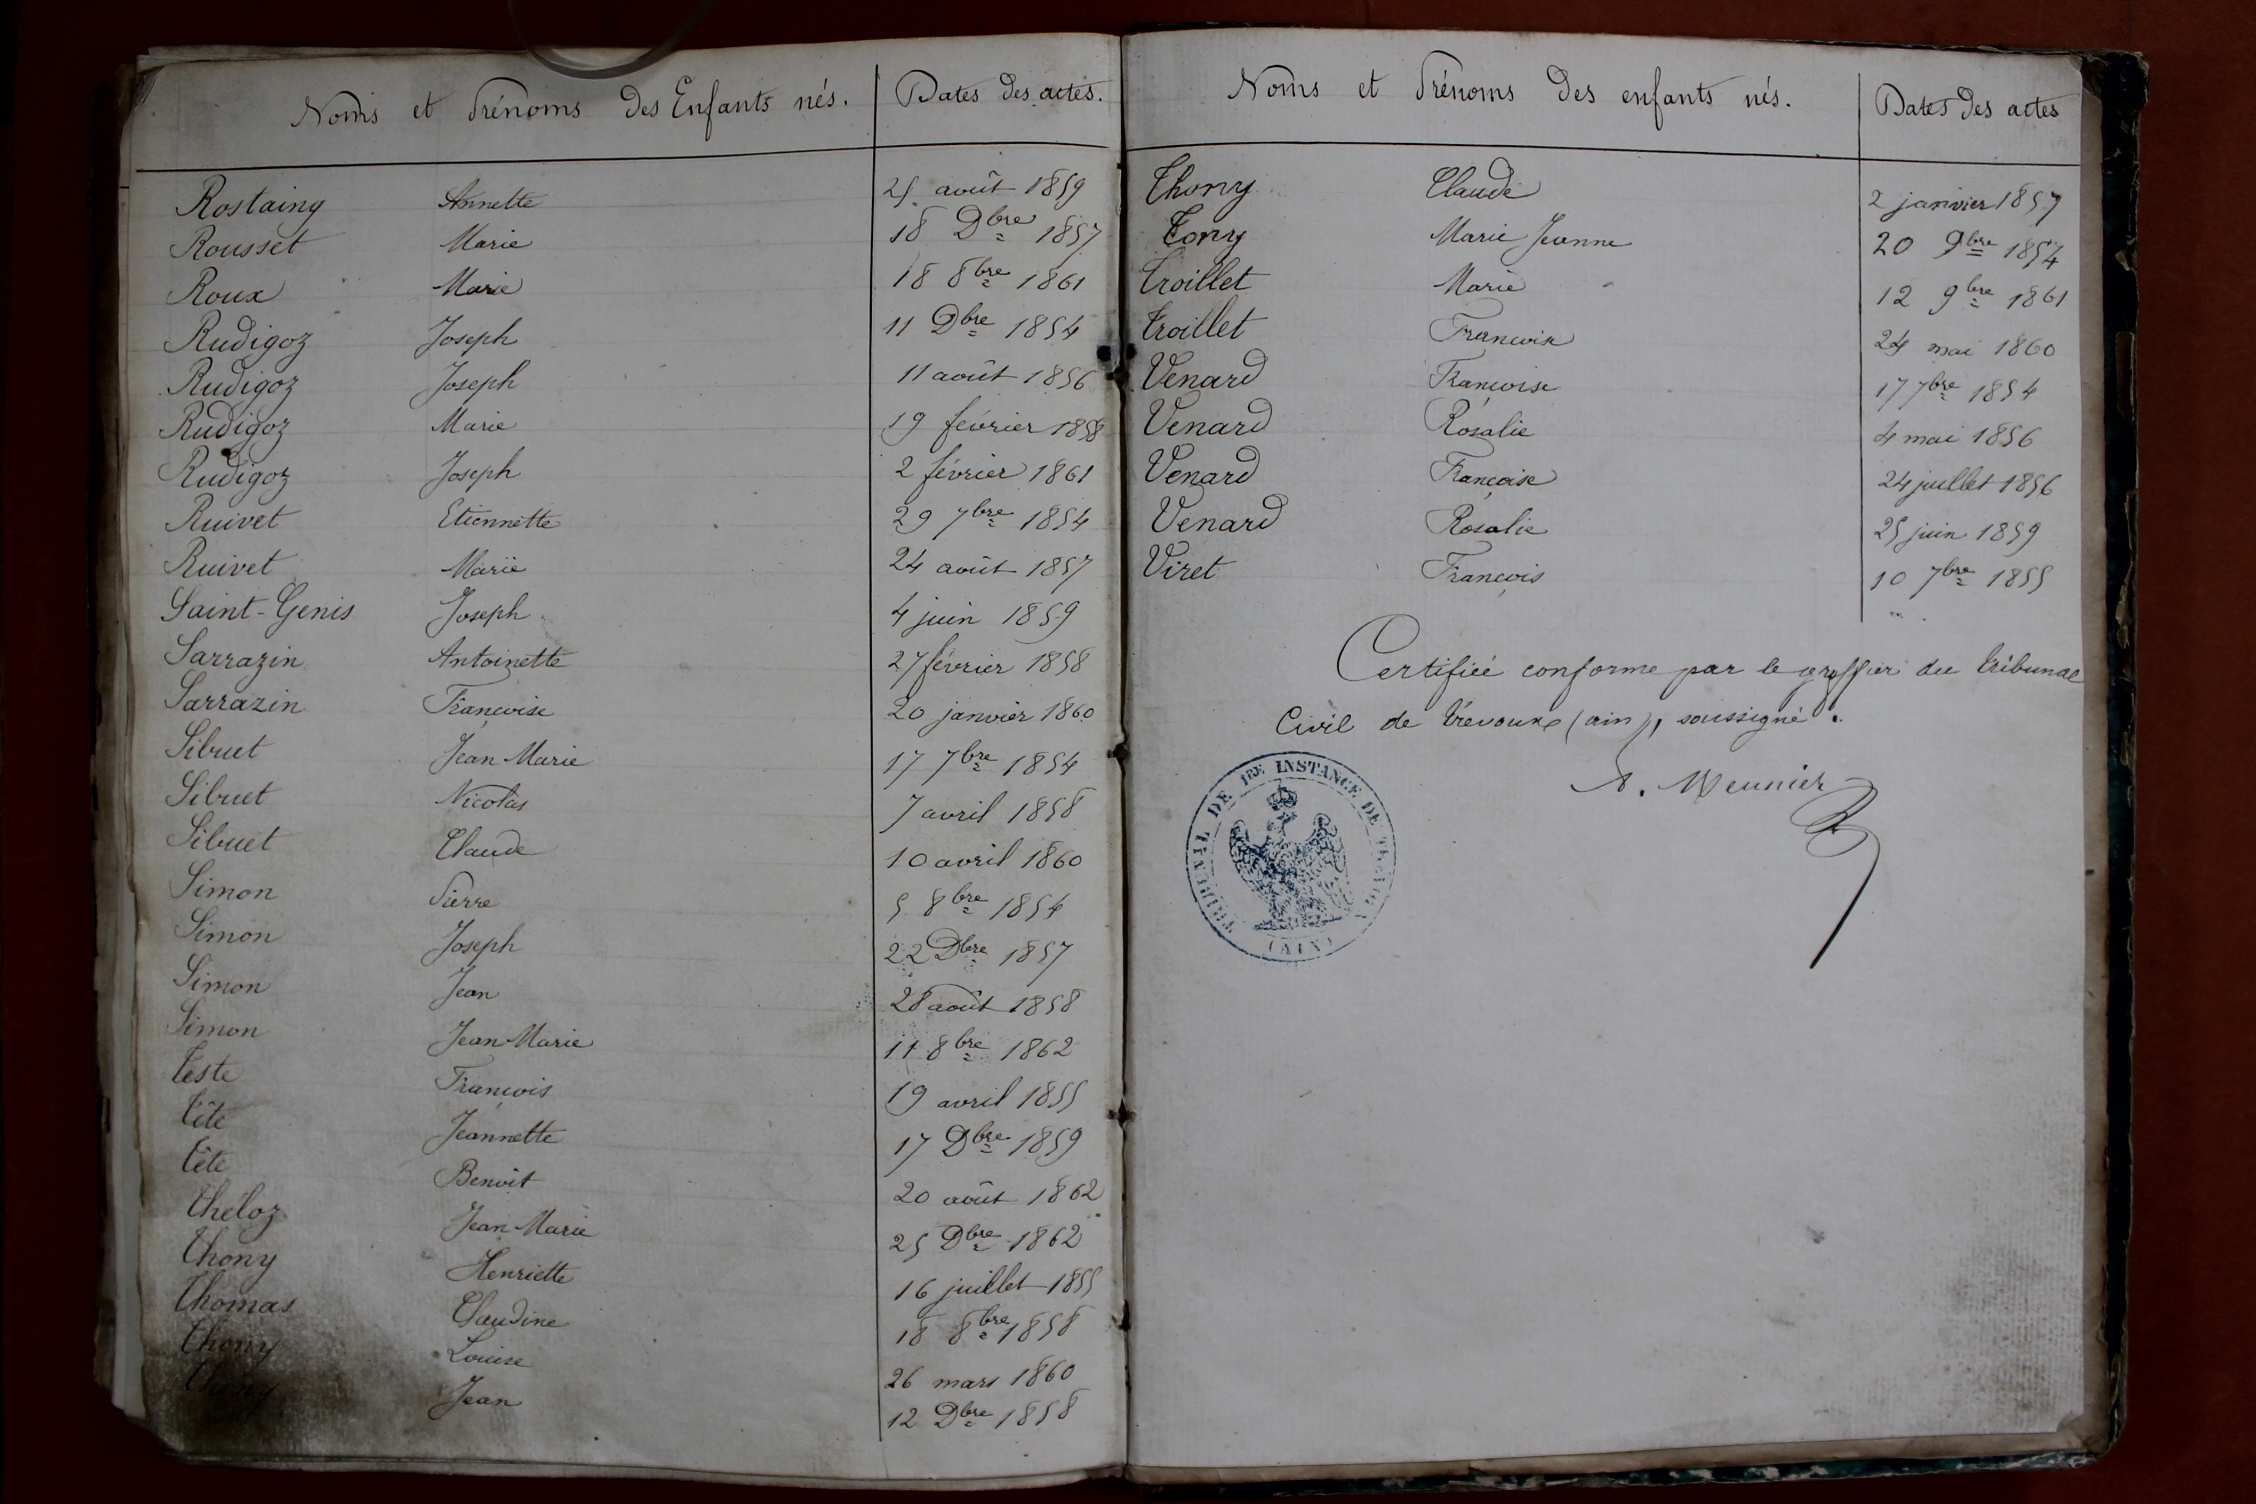 Noms et Prénoms des Enfants nés. Dates des actes.
Rostaing Annette 25 août 1859
Rousset Marie 18 Dbre 1857
Roux Marie 18 8bre 1861
Rudigoz Joseph 11 Dbre 1854
Rudigoz Joseph 11 août 1856
Rudigoz Marie 19 février 1858
Rudigoz Joseph 2 février 1861
Ruivet Etiennette 29 7bre 1854
Ruivet Marie 24 août 1857
Saint-Genis Joseph 4 juin 1859
Sarrazin Antoinette 27 février 1858
Sarrazin Françoise 20 janvier 1860
Sibuet Jean Marie 17 7bre 1854
Sibuet Nicolas 7 avril 1858
Sibuet Claude 10 avril 1860
Simon Pierre 5 8bre 1854
Simon Joseph 22 Dbre 1857
Simon Jean 28 août 1858
Simon Jean Marie 11 8bre 1862
Teste François 19 avril 1855
Tête Jeannette 17 Dbre 1859
Tête Benoit 20 août 1862
Théloz Jean Marie 25 Dbre 1862
Thony Henriette 16 juillet 1855
Thomas Claudine 18 8bre 1858
Thony Louise 26 mars 1860
Thony Jean 12 Dbre 1858
Noms et Prénoms des enfants nés. Dates des actes
Thony Claude 2 janvier 1857
Tony Marie Jeanne 20 9bre 1854
Troillet Marie 12 9bre 1861
Troillet Francoise 24 mai 1860
Venard Françoise 17 7bre 1854
Venard Rosalie 4 mai 1856
Venard Françoise 24 juillet 1856
Venard Rosalie 25 juin 1859
Viret François 10 7bre 1855
Certifiée conforme par le greffier du tribunal
Civil de Trévoux (ain), soussigné.
A. Meunier
TRIBUNAL DE 1RE INSTANCE DE TREVOUX
(AIN)